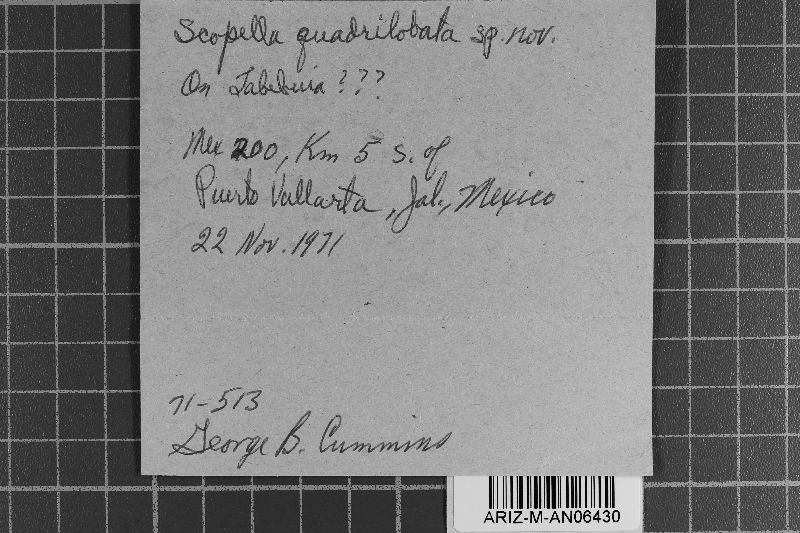 Scopella quadrilobata sp. nov.
On Tabebuia ???
Mex 200, Km 5 S. of
Puerto Vallarta, Jal., Mexico
22 Nov. 1971
71-513
George B. Cummins
ARIZ-M-AN06430